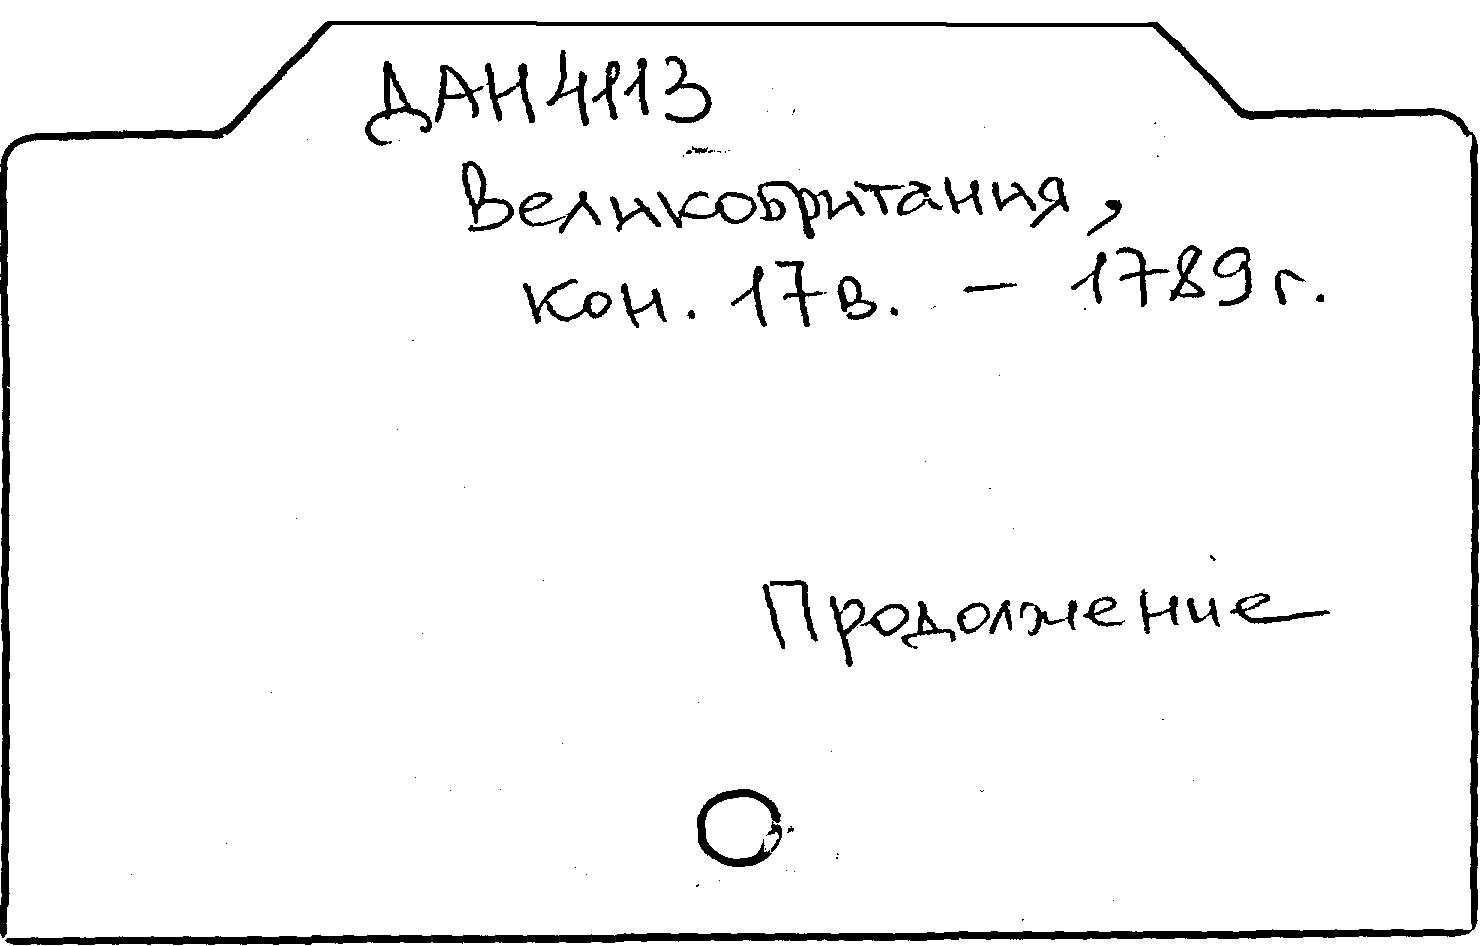 ДАН4113
Великобритания,
кон. 17в. – 1789г.
Продолжение